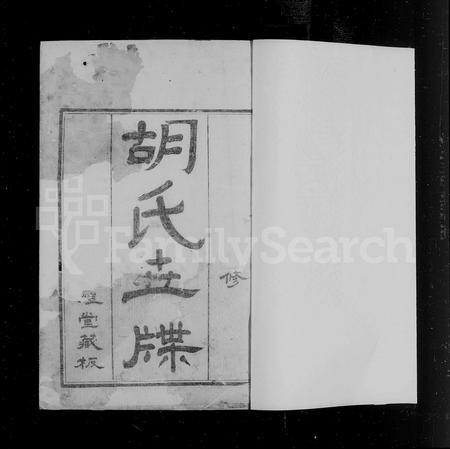 修
胡氏世牒
堂藏板
FamilySearch